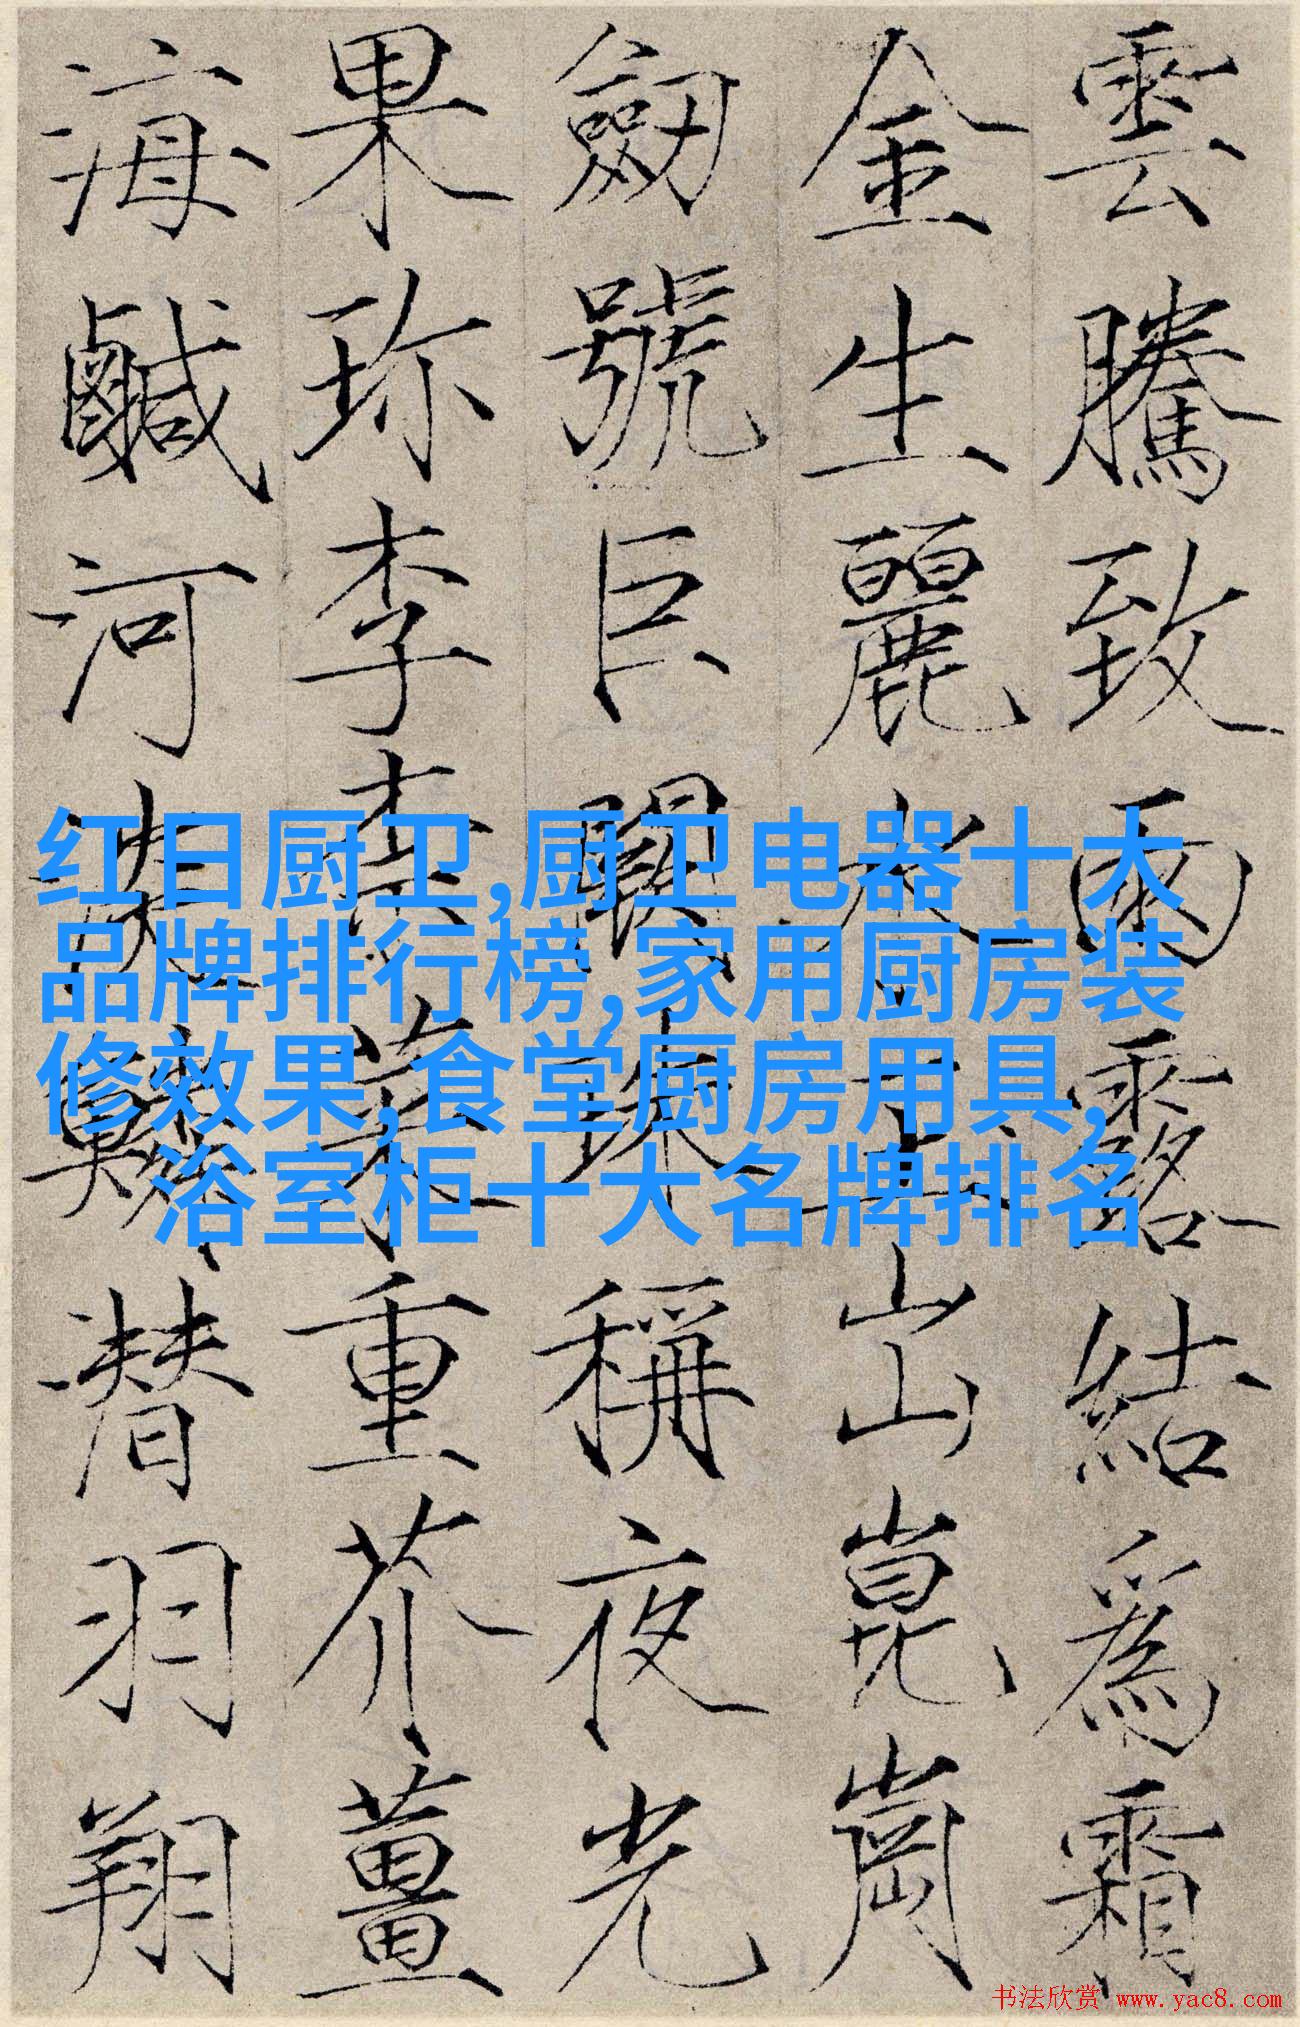 雲騰致雨露結爲霜
金生麗水玉出崑崗
劒號巨闕珠稱夜光
果珎李柰菜重芥薑
海鹹河淡鱗潜羽翔
红日厨卫,厨卫电器十大
品牌排行榜,家用厨房装
修效果,食堂厨房用具,
浴室柜十大名牌排名
书法欣赏 www.yac8.com